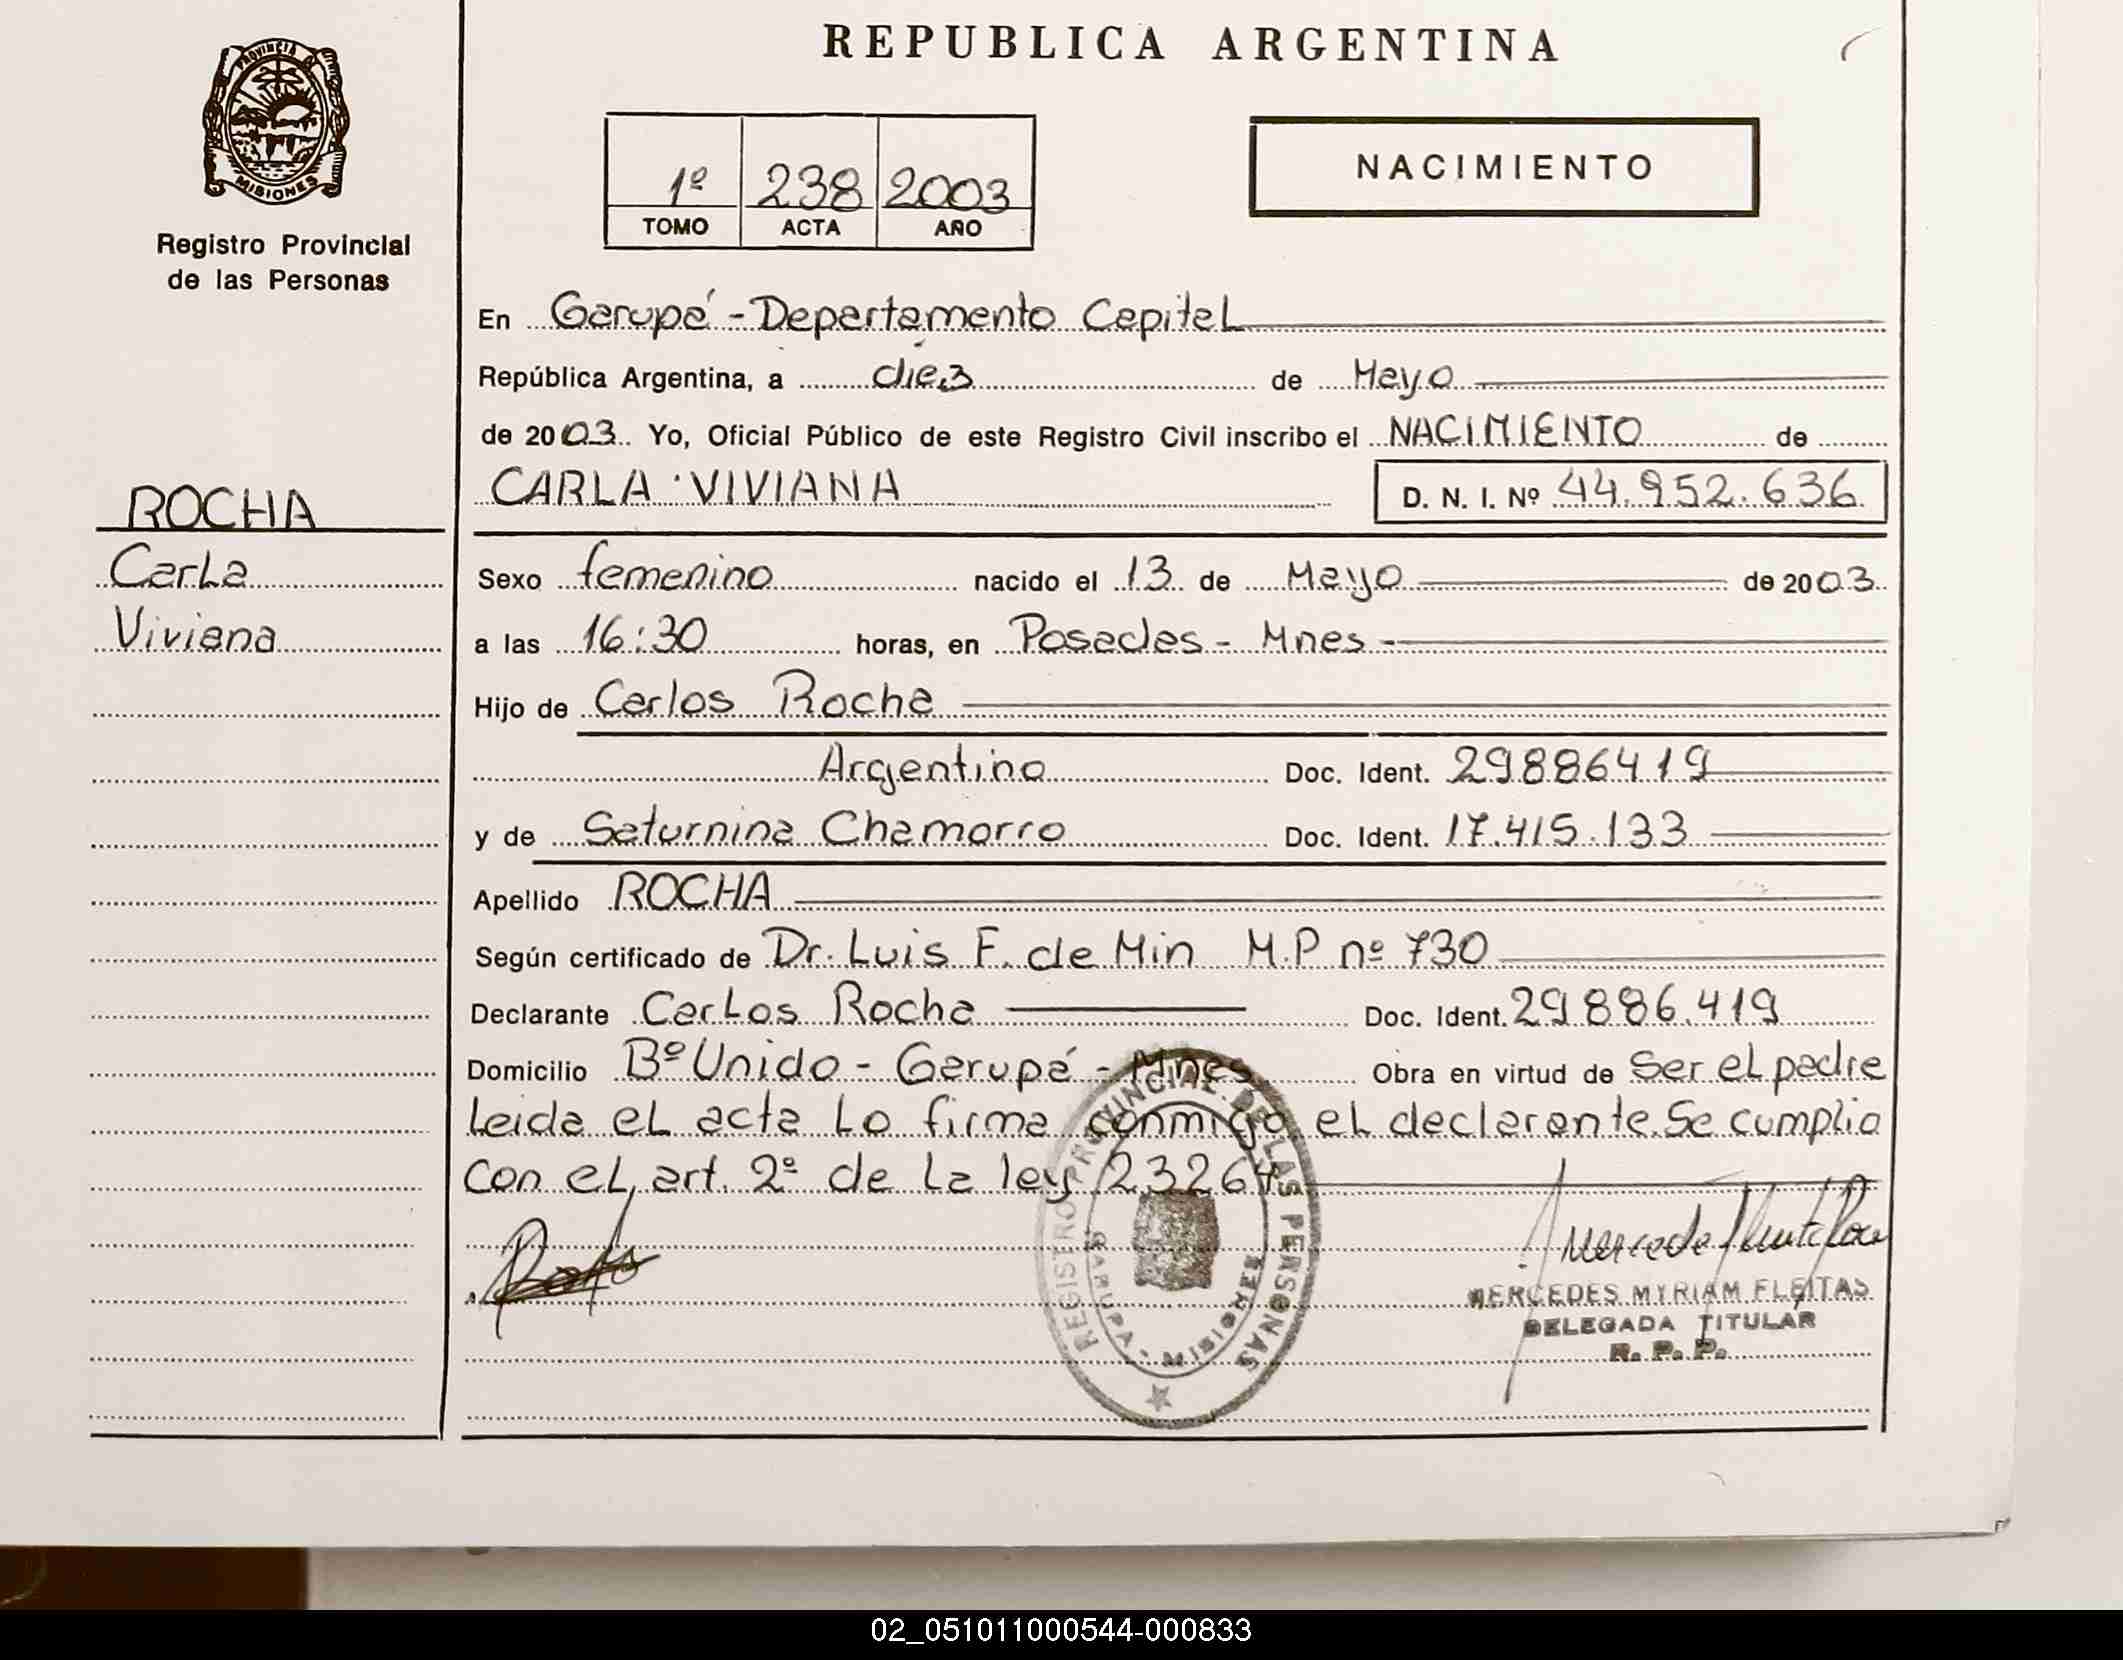 REPUBLICA ARGENTINA
PROVINCIA
MISIONES
Registro Provincial
de las Personas
1º 238 2003
TOMO ACTA AÑO
NACIMIENTO
ROCHA
Carla
Viviana
En Garupá - Departamento Capital
República Argentina, a diez de Mayo
de 2003. Yo, Oficial Público de este Registro Civil inscribo el NACIMIENTO de
CARLA VIVIANA D. N. I. Nº 44.952.636.
Sexo femenino nacido el 13 de Mayo de 2003.
a las 16:30 horas, en Posadas - Mnes -
Hijo de Carlos Rocha
Argentino Doc. Ident. 29886419
y de Saturnina Chamorro Doc. Ident. 17.415.133
Apellido ROCHA
Según certificado de Dr. Luis F. de Min M.P nº 730
Declarante Carlos Rocha Doc. Ident. 29886.419
Domicilio Bº Unido - Garupá - Mnes Obra en virtud de Ser el padre
Leida el acta Lo firma conmigo el declarante. Se cumplio
con el art. 2º de la ley 23264
REGISTRO PROVINCIAL DE LAS PERSONAS
GARUPA - MISIONES
MERCEDES MYRIAM FLEITAS
DELEGADA TITULAR
R. P. P.
02_051011000544-000833